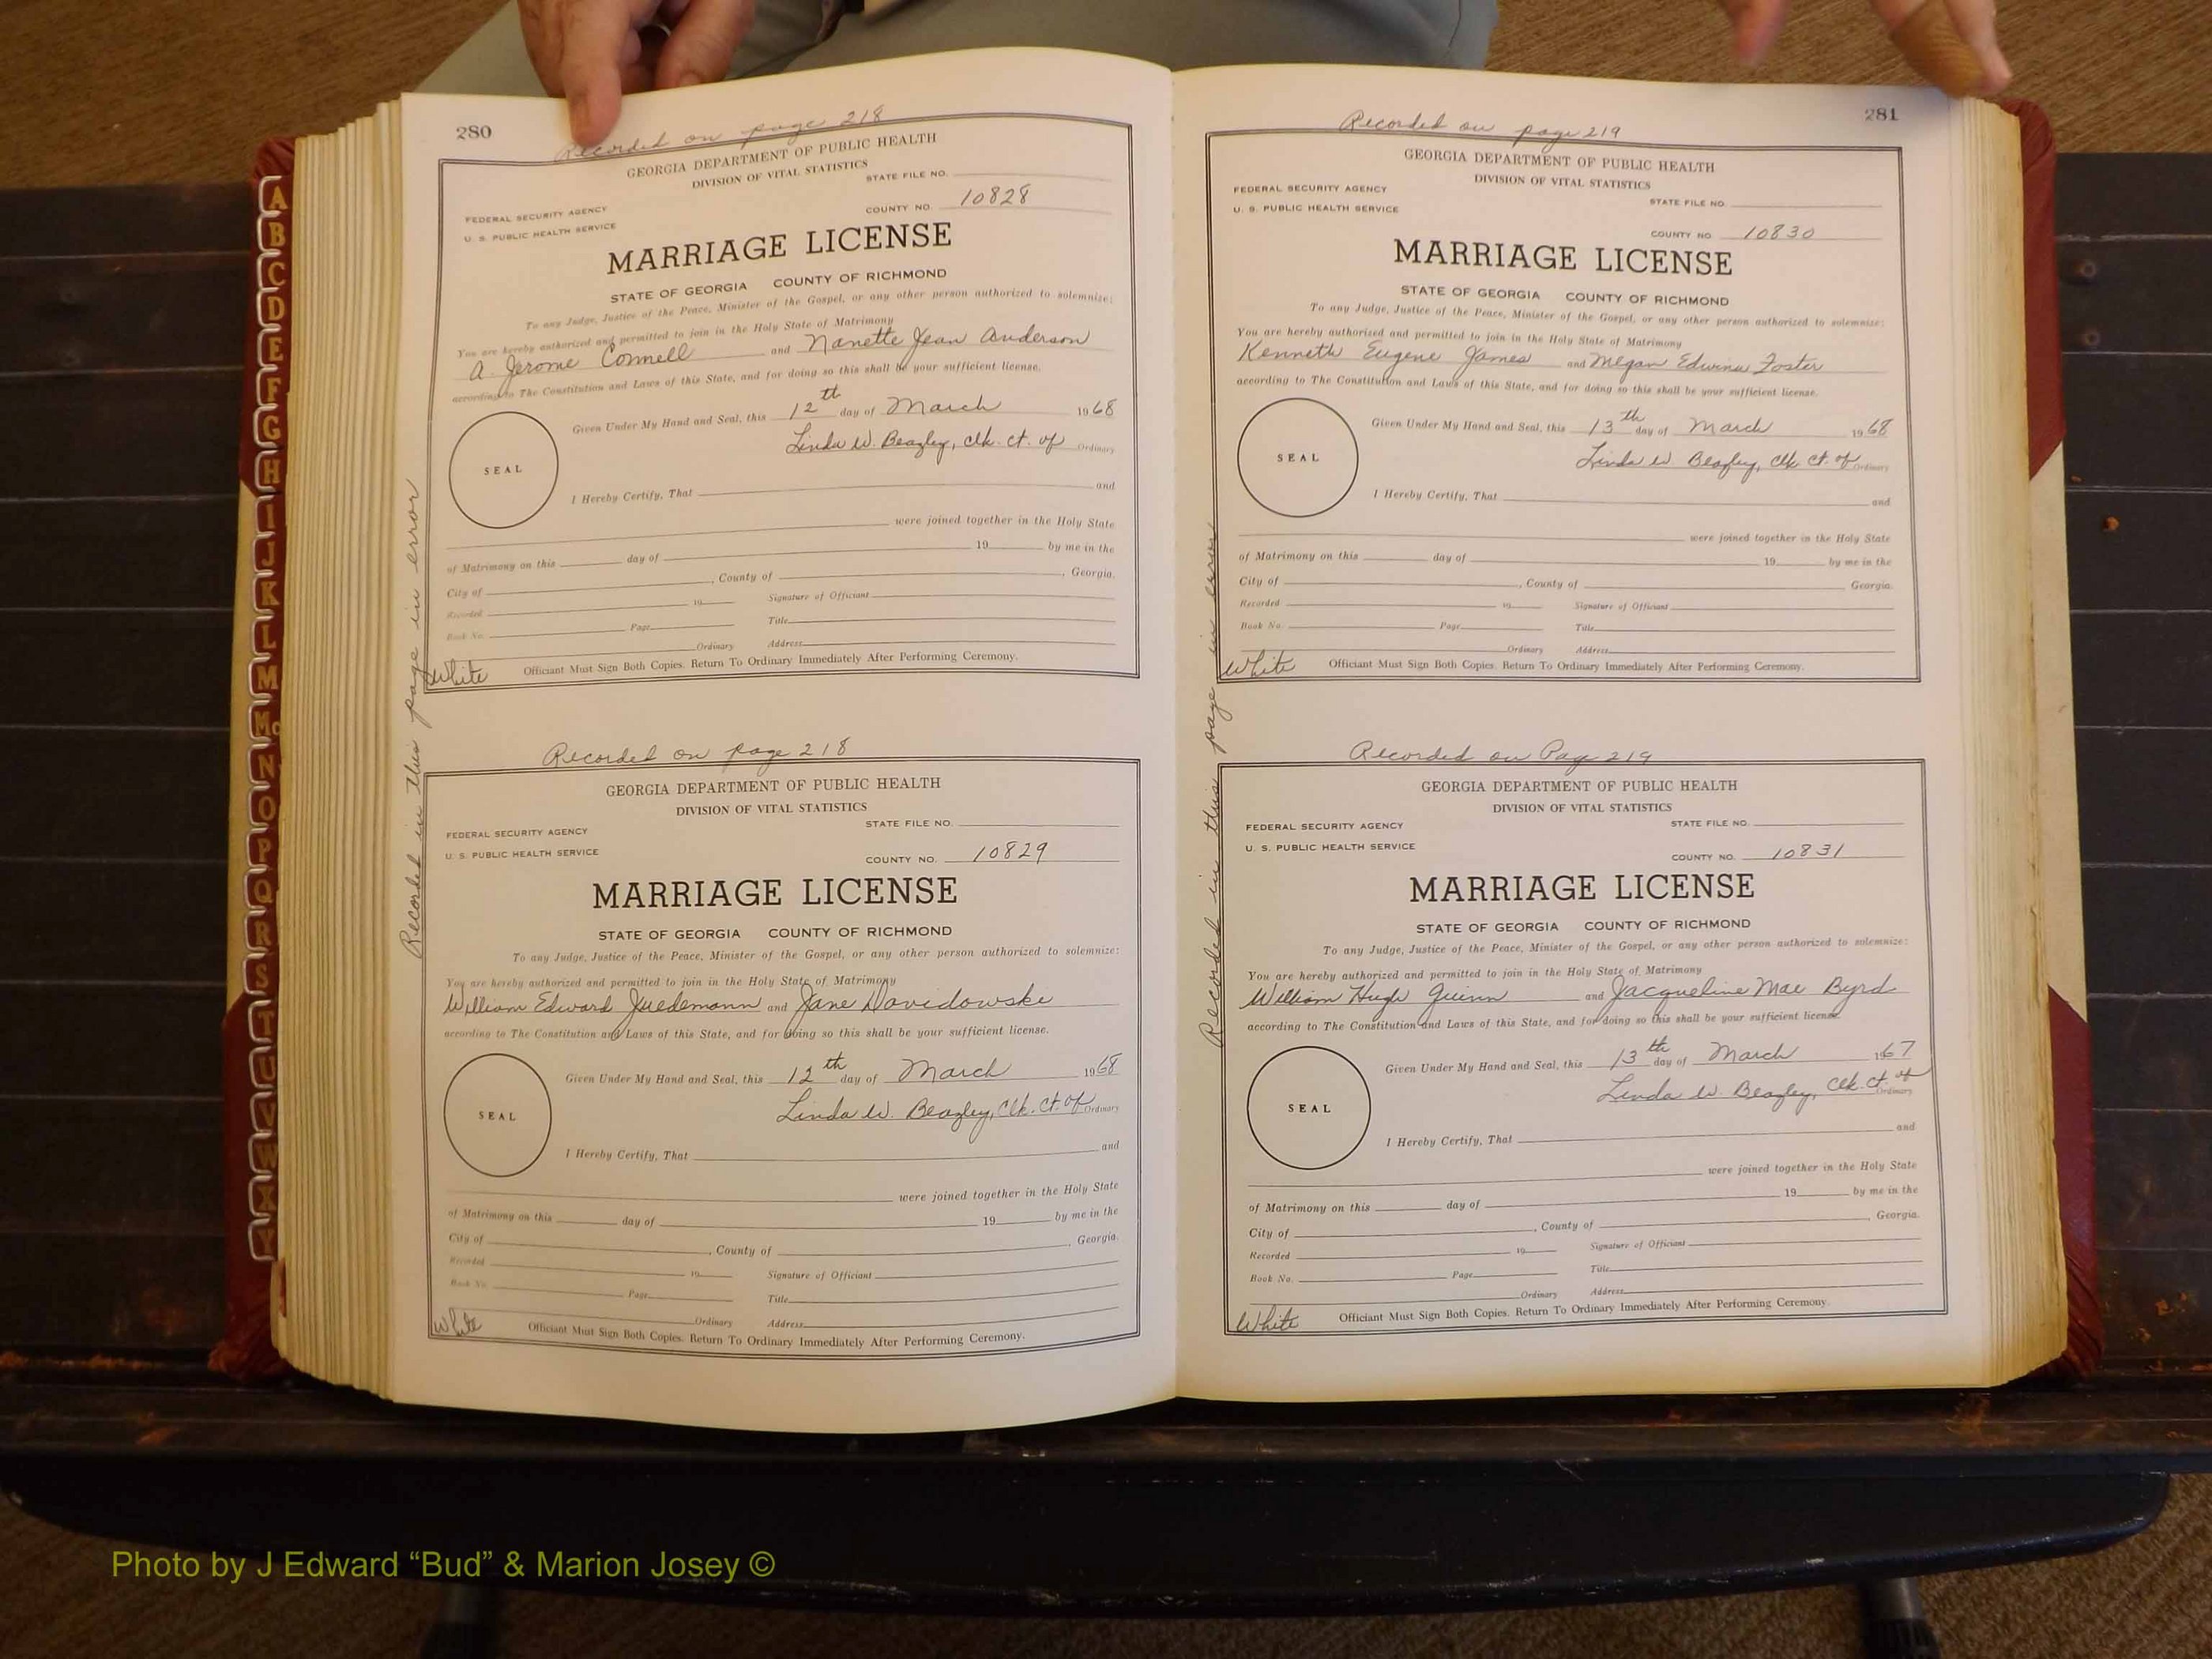 280
Recorded on page 218
GEORGIA DEPARTMENT OF PUBLIC HEALTH
DIVISION OF VITAL STATISTICS
STATE FILE NO.
FEDERAL SECURITY AGENCY
U. S. PUBLIC HEALTH SERVICE
COUNTY NO. 10828
MARRIAGE LICENSE
STATE OF GEORGIA COUNTY OF RICHMOND
To any Judge, Justice of the Peace, Minister of the Gospel, or any other person authorized to solemnize:
You are hereby authorized and permitted to join in the Holy State of Matrimony
A. Jerome Connell and Nanette Jean Anderson
according to The Constitution and Laws of this State, and for doing so this shall be your sufficient license.
Given Under My Hand and Seal, this 12th day of March 1968
Linda W. Beazley, Clk. Ct. of Ordinary
SEAL
I Hereby Certify, That and
were joined together in the Holy State
of Matrimony on this day of 19 by me in the
City of , County of , Georgia.
Recorded 19 Signature of Officiant
Book No. Page Title
Ordinary Address
White Officiant Must Sign Both Copies. Return To Ordinary Immediately After Performing Ceremony.
Recorded in this page in error
Recorded on page 218
GEORGIA DEPARTMENT OF PUBLIC HEALTH
DIVISION OF VITAL STATISTICS
STATE FILE NO.
FEDERAL SECURITY AGENCY
U. S. PUBLIC HEALTH SERVICE
COUNTY NO. 10829
MARRIAGE LICENSE
STATE OF GEORGIA COUNTY OF RICHMOND
To any Judge, Justice of the Peace, Minister of the Gospel, or any other person authorized to solemnize:
You are hereby authorized and permitted to join in the Holy State of Matrimony
William Edward and Jane Davidowski
according to The Constitution and Laws of this State, and for doing so this shall be your sufficient license.
Given Under My Hand and Seal, this 12th day of March 1968
Linda W. Beazley, Clk. Ct. of Ordinary
SEAL
I Hereby Certify, That and
were joined together in the Holy State
of Matrimony on this day of 19 by me in the
City of , County of , Georgia.
Recorded 19 Signature of Officiant
Book No. Page Title
Ordinary Address
White Officiant Must Sign Both Copies. Return To Ordinary Immediately After Performing Ceremony.
281
Recorded on page 219
GEORGIA DEPARTMENT OF PUBLIC HEALTH
DIVISION OF VITAL STATISTICS
FEDERAL SECURITY AGENCY
U. S. PUBLIC HEALTH SERVICE
STATE FILE NO.
COUNTY NO. 10830
MARRIAGE LICENSE
STATE OF GEORGIA COUNTY OF RICHMOND
To any Judge, Justice of the Peace, Minister of the Gospel, or any other person authorized to solemnize:
You are hereby authorized and permitted to join in the Holy State of Matrimony
Kenneth Eugene James and Megan Edwina Foster
according to The Constitution and Laws of this State, and for doing so this shall be your sufficient license.
Given Under My Hand and Seal, this 13th day of March 1968
Linda W Beazley, Clk Ct. of Ordinary
SEAL
I Hereby Certify, That and
were joined together in the Holy State
of Matrimony on this day of 19 by me in the
City of , County of Georgia.
Recorded 19 Signature of Officiant
Book No. Page Title
Ordinary Address
White Officiant Must Sign Both Copies. Return To Ordinary Immediately After Performing Ceremony.
Recorded in this page in error
Recorded on Page 219
GEORGIA DEPARTMENT OF PUBLIC HEALTH
DIVISION OF VITAL STATISTICS
FEDERAL SECURITY AGENCY
STATE FILE NO.
U. S. PUBLIC HEALTH SERVICE
COUNTY NO. 10831
MARRIAGE LICENSE
STATE OF GEORGIA COUNTY OF RICHMOND
To any Judge, Justice of the Peace, Minister of the Gospel, or any other person authorized to solemnize:
You are hereby authorized and permitted to join in the Holy State of Matrimony
William Hugh Guinn and Jacqueline Mae Byrd
according to The Constitution and Laws of this State, and for doing so this shall be your sufficient license.
Given Under My Hand and Seal, this 13th day of March 1967
Linda W. Beazley, Clk. Ct. of Ordinary
SEAL
I Hereby Certify, That and
were joined together in the Holy State
of Matrimony on this day of 19 by me in the
City of , County of , Georgia.
Recorded 19 Signature of Officiant
Book No. Page Title
Ordinary Address
White Officiant Must Sign Both Copies. Return To Ordinary Immediately After Performing Ceremony.
A
B
C
D
E
F
G
H
I
J
K
L
M
Mc
N
O
P
Q
R
S
T
U
V
W
X
Y
Photo by J Edward “Bud” & Marion Josey ©